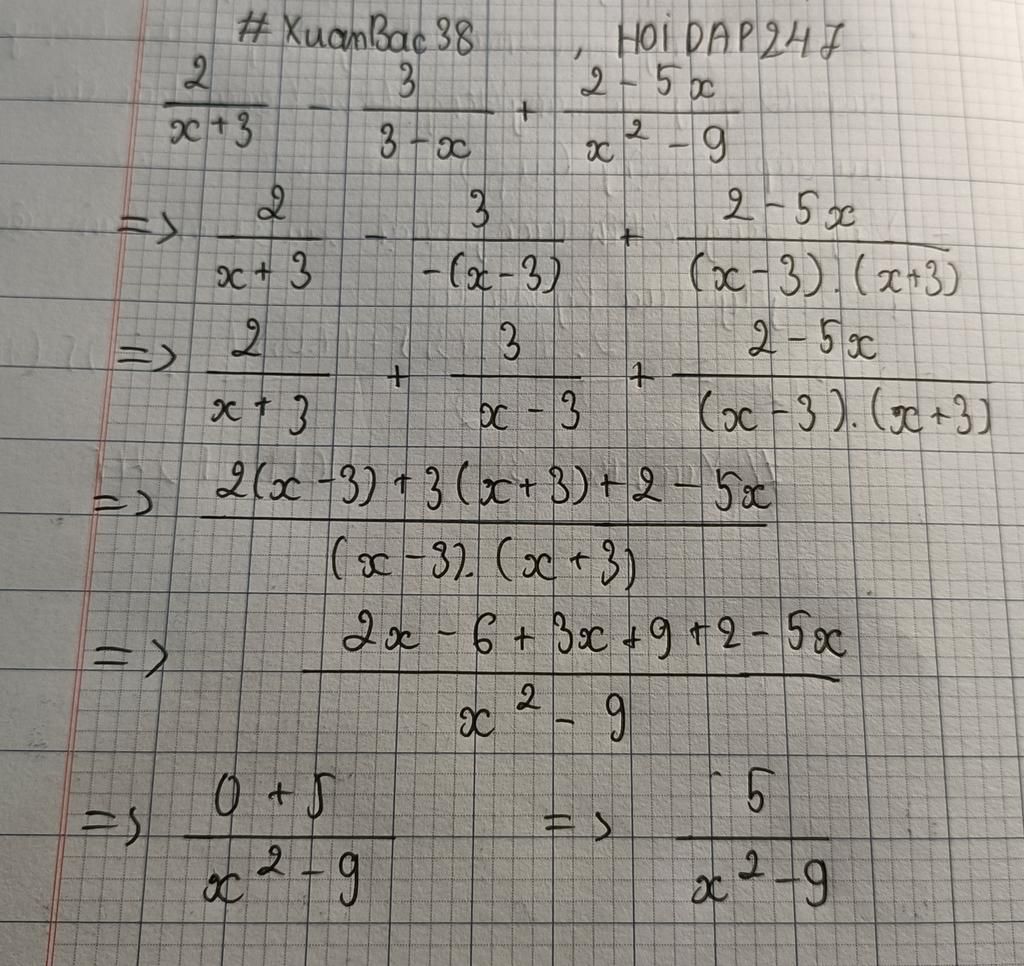 #XuanBac38 , HOiDAP247
2/(x+3) - 3/(3-x) + (2-5x)/(x²-9)
=> 2/(x+3) - 3/(-(x-3)) + (2-5x)/((x-3).(x+3))
=> 2/(x+3) + 3/(x-3) + (2-5x)/((x-3).(x+3))
=> (2(x-3)+3(x+3)+2-5x)/((x-3).(x+3))
=> (2x-6+3x+9+2-5x)/(x²-9)
=> (0+5)/(x²-9) => 5/(x²-9)